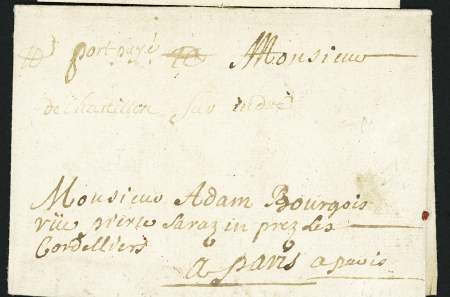 10ˢ port payé 10 Monsieur
de Chastillon Sur indre
Monsieur Adam Bourgois
rüe pierre Sarazin prez Les
Cordelliers
a paris a paris